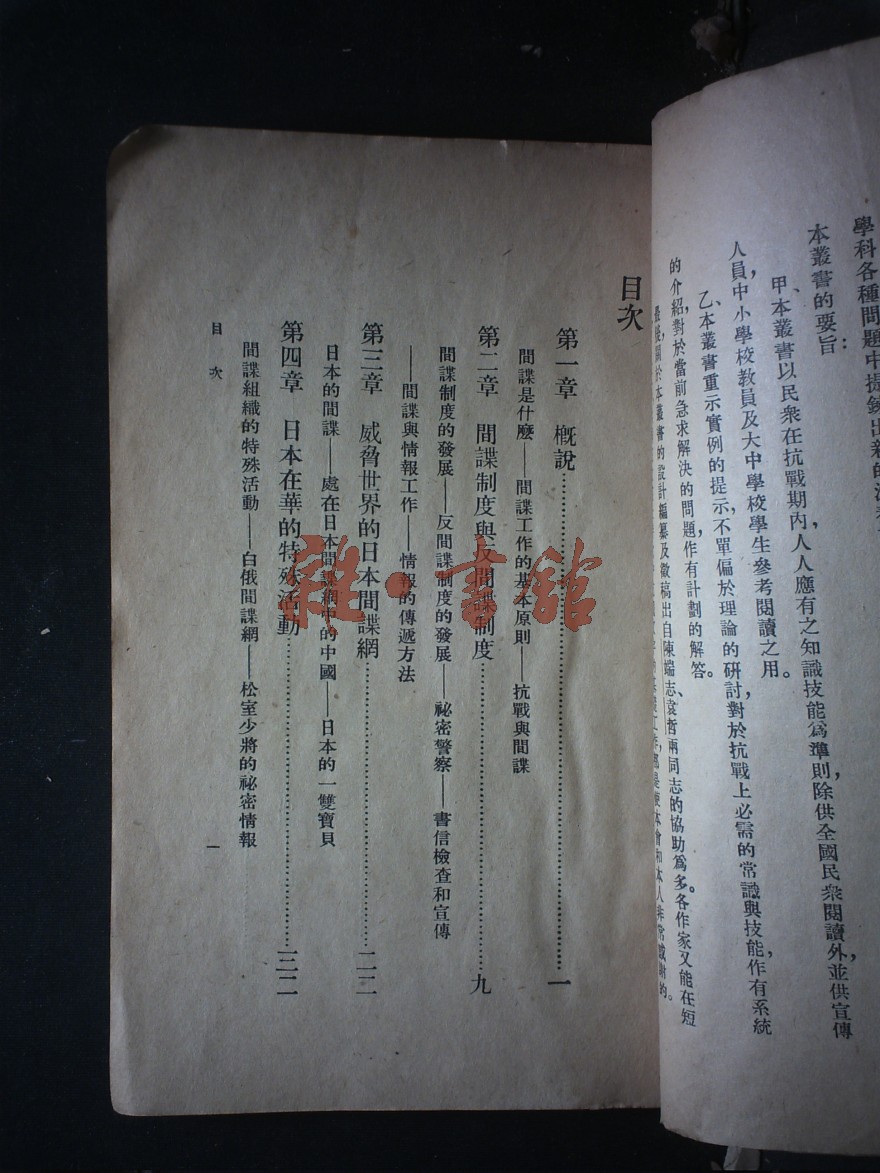 本叢書的要旨：
甲、本叢書以民衆在抗戰期內，人人應有之知識技能爲準則，除供全國民衆閱讀外，並供宣傳
人員，中小學校教員及大中學校學生參考閱讀之用。
乙、本叢書重示實例的提示，不單偏於理論的研討，對於抗戰上必需的常識與技能，作有系統
的介紹，對於當前急求解決的問題，作有計劃的解答。
關於本叢書的設計編纂及徵稿出自陳端志、袁哲兩同志的協助爲多。各作家又能在短
目次
第一章　概說……一
間諜是什麼——間諜工作的基本原則——抗戰與間諜
第二章　間諜制度與反間諜制度……九
間諜制度的發展——反間諜制度的發展——祕密警察——書信檢查和宣傳
——間諜與情報工作——情報的傳遞方法
第三章　威脅世界的日本間諜網……二二
日本的間諜——處在日本間諜網中的中國——日本的一雙寶貝
第四章　日本在華的特殊活動……三二
間諜組織的特殊活動——白俄間諜網——松室少將的祕密情報
目次
一
雜·書館